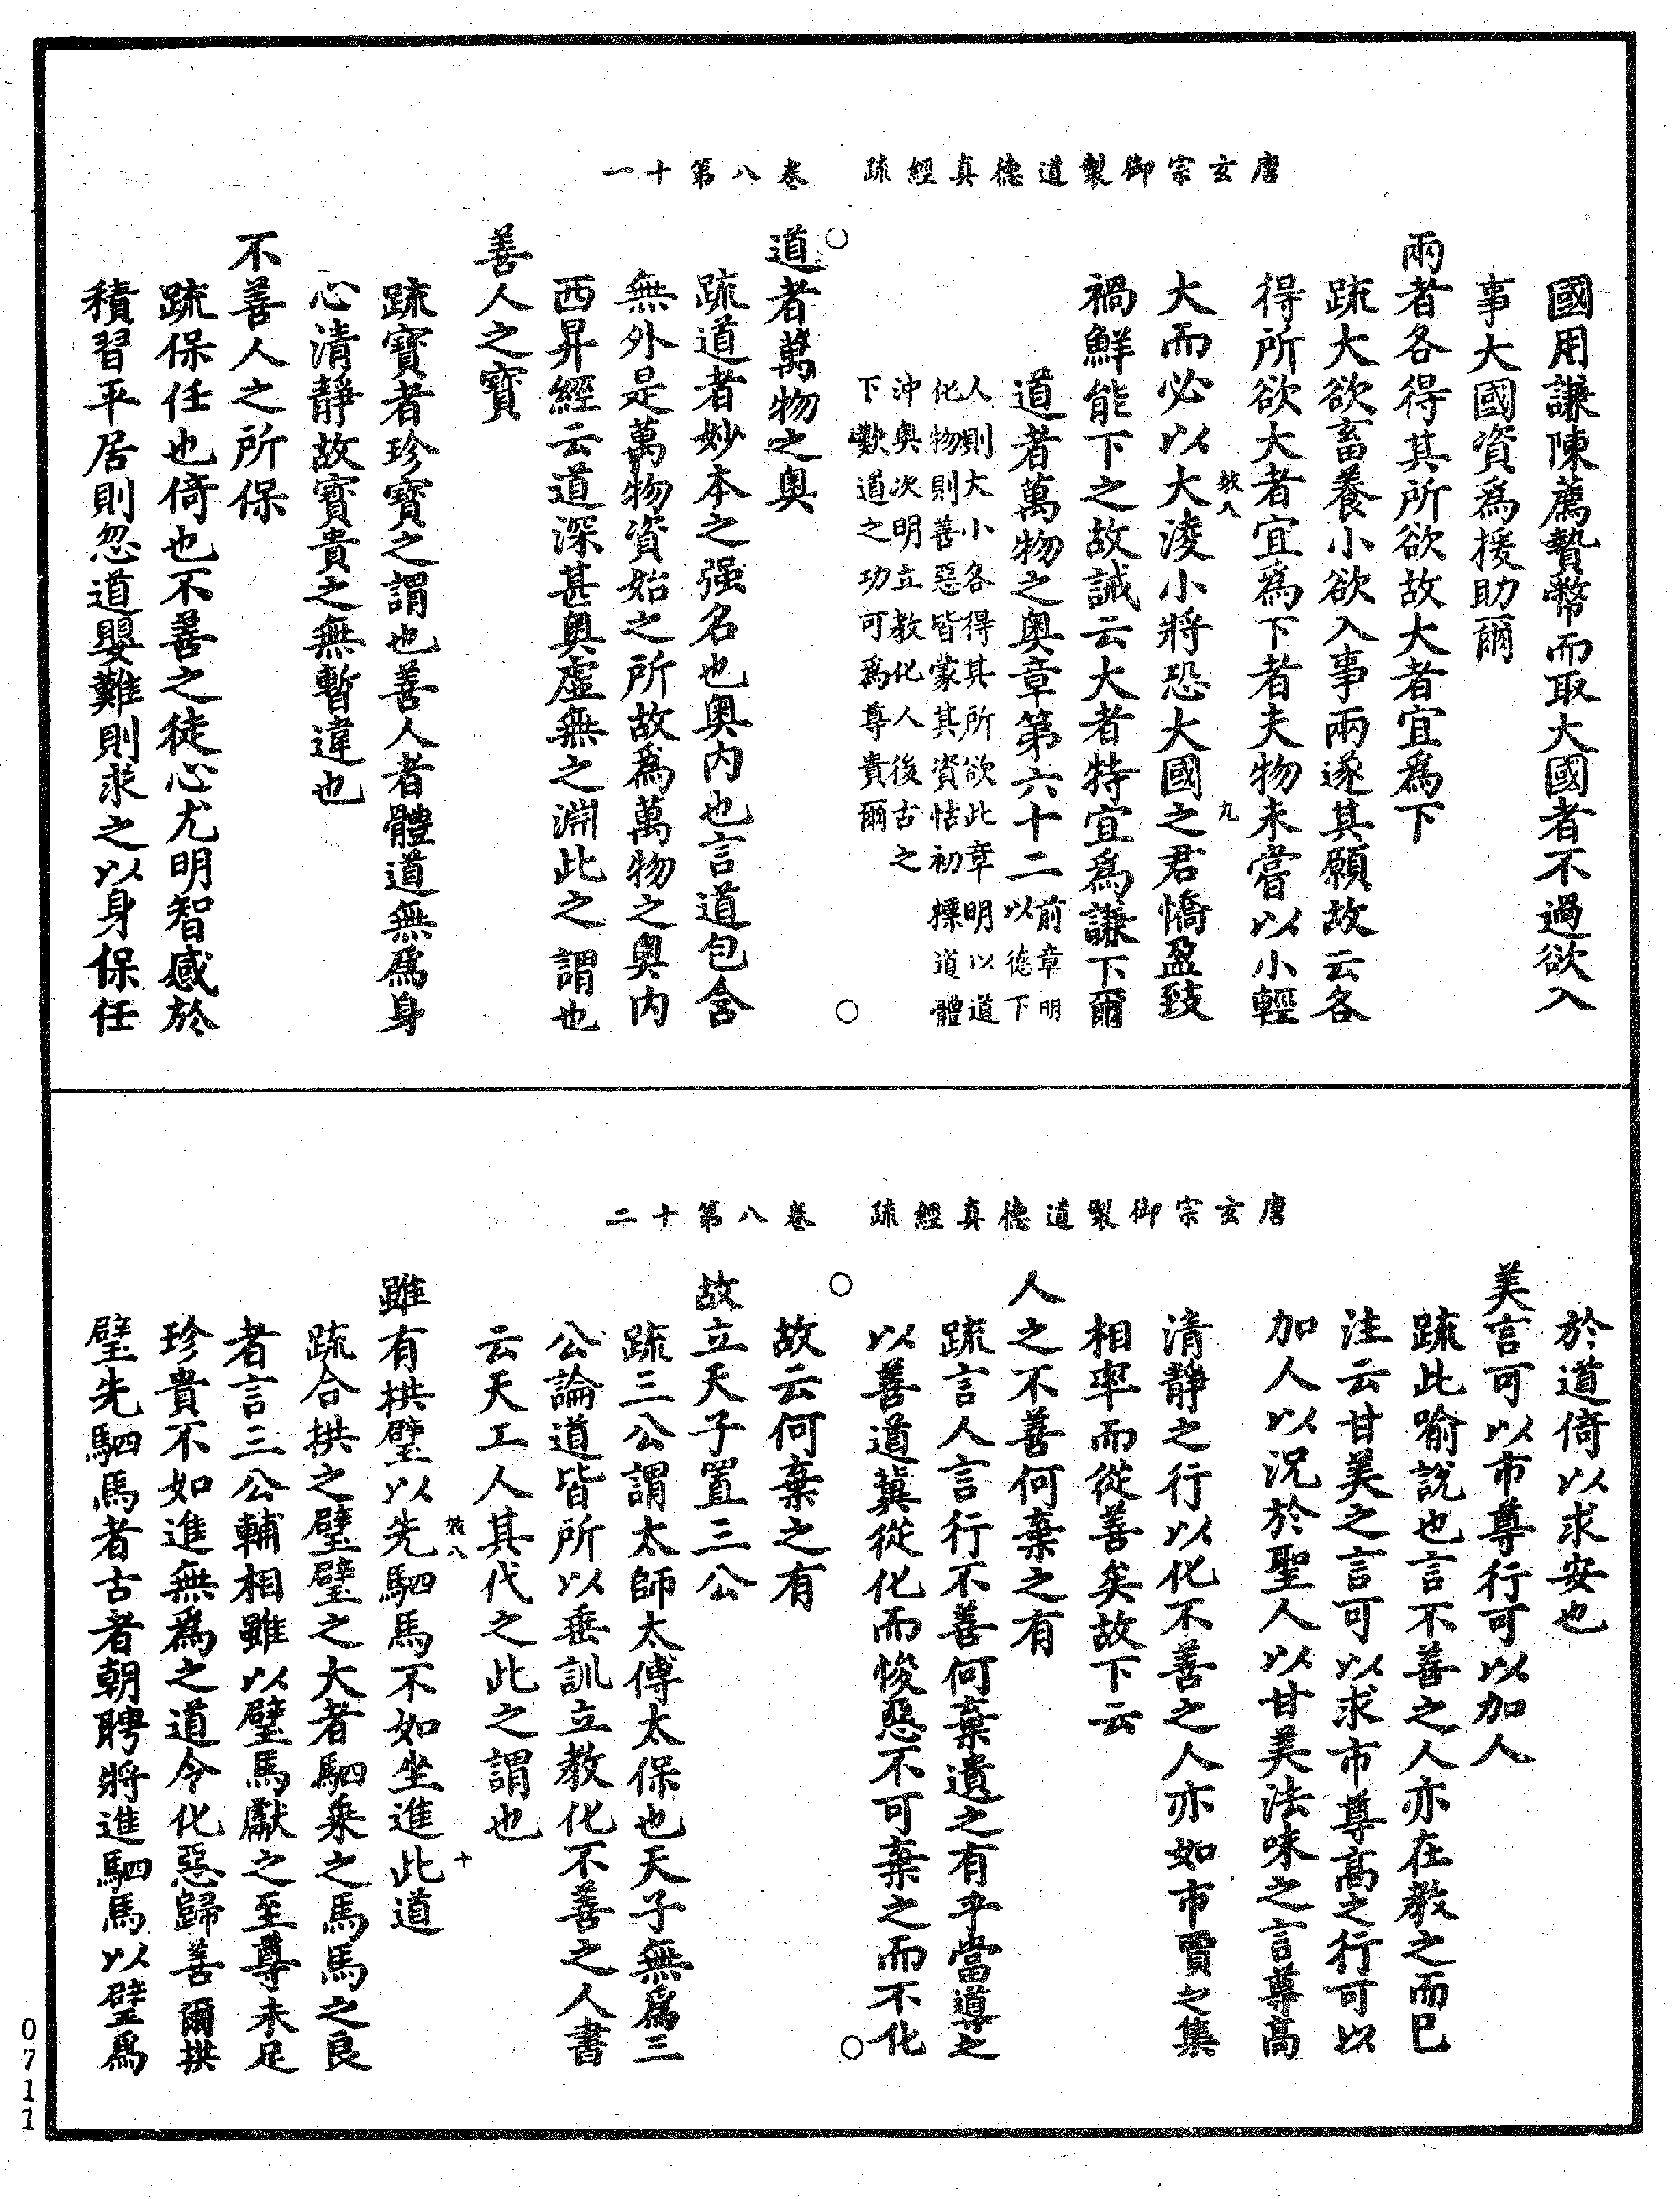 唐玄宗御製道德真經疏　卷八第十一
國用謙陳薦贄幣而取大國者不過欲入
事大國資爲援助爾
兩者各得其所欲故大者宜爲下
疏大欲畜養小欲入事兩遂其願故云各
得所欲大者宜爲下者夫物未嘗以小輕
大而必以大淩小將恐大國之君憍盈致
禍鮮能下之故誡云大者特宜爲謙下爾
道者萬物之奧章第六十二前章明以德下
人則大小各得其所欲此章明以道
化物則善惡皆蒙其資怙初摽道體
沖奧次明立教化人後古之
下歎道之功可爲尊貴爾
道者萬物之奧
疏道者妙本之强名也奧内也言道包含
無外是萬物資始之所故爲萬物之奧内
西昇經云道深甚奧虛無之淵此之謂也
善人之寶
疏寶者珍寶之謂也善人者體道無爲身
心清靜故寶貴之無暫違也
不善人之所保
疏保任也倚也不善之徒心尤明智感於
積習平居則忽道嬰難則求之以身保任
唐玄宗御製道德真經疏　卷八第十二
於道倚以求安也
美言可以市尊行可以加人
疏此喻說也言不善之人亦在教之而已
注云甘美之言可以求市尊高之行可以
加人以況於聖人以甘美法味之言尊高
清靜之行以化不善之人亦如市賈之集
相率而從善矣故下云
人之不善何棄之有
疏言人言行不善何棄遺之有乎當導之
以善道冀從化而悛惡不可棄之而不化
故云何棄之有
故立天子置三公
疏三公謂太師太傅太保也天子無爲三
公論道皆所以垂訓立教化不善之人書
云天工人其代之此之謂也
雖有拱璧以先駟馬不如坐進此道
疏合拱之璧璧之大者駟乗之馬馬之良
者言三公輔相雖以璧馬獻之至尊未足
珍貴不如進無爲之道令化惡歸善爾拱
璧先駟馬者古者朝聘將進駟馬以璧爲
0711